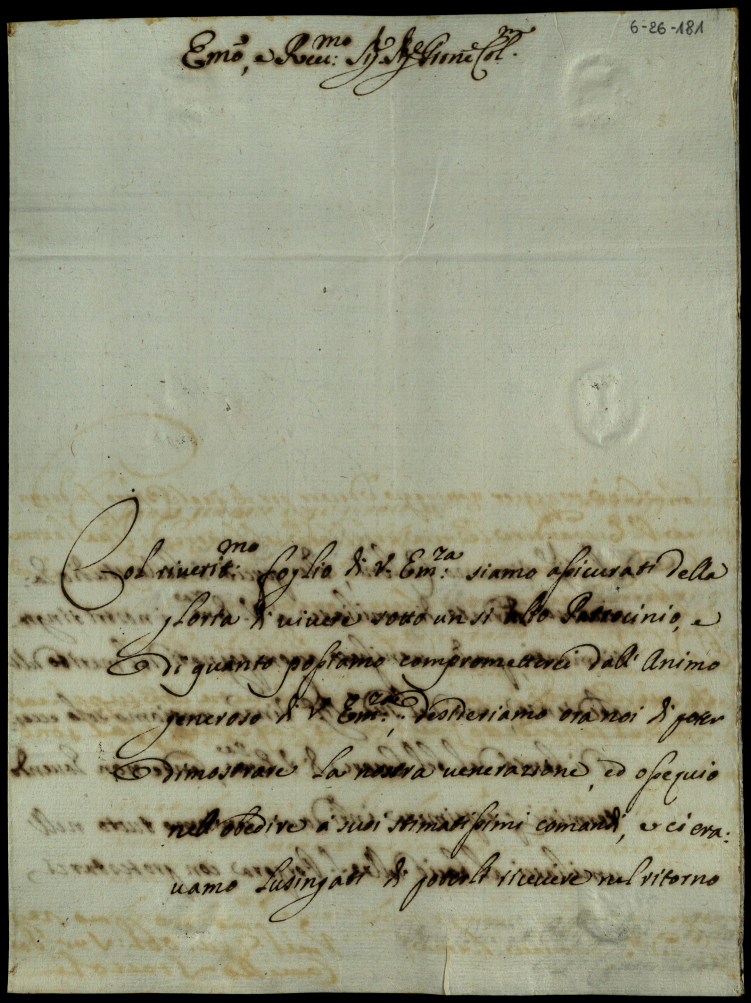 6-26-181
Emō, e Reu:mo Sig Sig Prōne Col.mo
Col riverit:mo foglio di V. Em:za siamo assicurati della
gloria di vivere sotto un sì alto Patrocinio, e
di quanto possiamo comprometterci dall'Animo
generoso di V. Em:za; desideriamo ora noi di poter
dimostrare la nostra venerazione, ed ossequio
nell'obedire a' suoi stimatissimi comandi, e ci era:
vamo lusingati di poterli ricevere nel ritorno